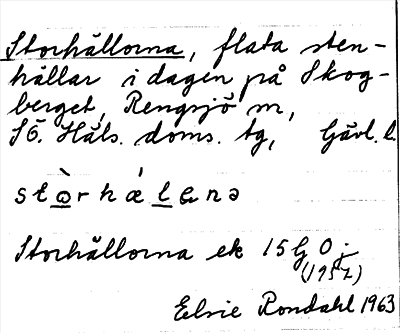 Storhällorna, flata sten-
hällar i dagen på Skog-
berget, Rengsjö sn,
SÖ. Häls. doms. tg, Gävl. l.
stòrhǽlɑnə
Storhällorna ek 15G 0j
(1957)
Elsie Rondahl 1963